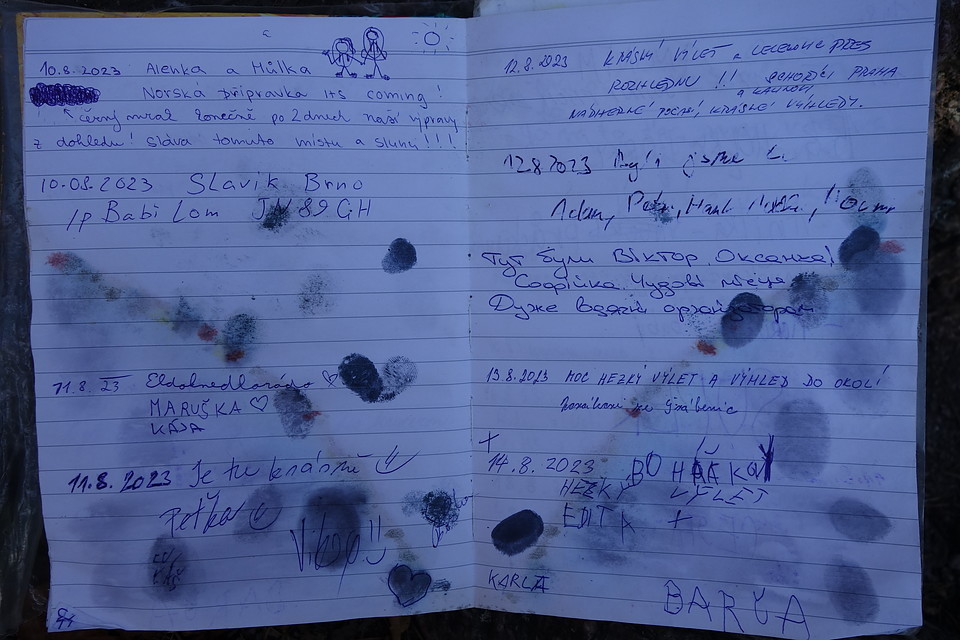 10.8.2023 Alenka a Hůlka
Norská přípravka its coming!
černý mrak konečně po 2 dnech naší výpravy
z dohledu! sláva tomuto místu a slunu!!!
10.08.2023 Slavik Brno
/p Babi Lom JN89GH
11.8. 23
MARUŠKA ♡
KÁJA
11.8.2023 Je tu krásně
Peťka
12.8.2023 KRÁSNÝ VÝLET z LELEKOVIC PŘES
ROZHLEDNU !! PRAHA
NÁDHERNÉ POČASÍ, KRÁSNÉ VÝHLEDY.
12.8.2023 Byli jsme
Adam, Petr,
Тут були Віктор Оксанка!
Софійка. Чудові місця
Дуже вдячні організаторам
13.8.2023 MOC HEZKÝ VÝLET A VÝHLED DO OKOLÍ
14.8.2023
HEZKÝ VÝLET
EDITA +
KARLA
BARČA